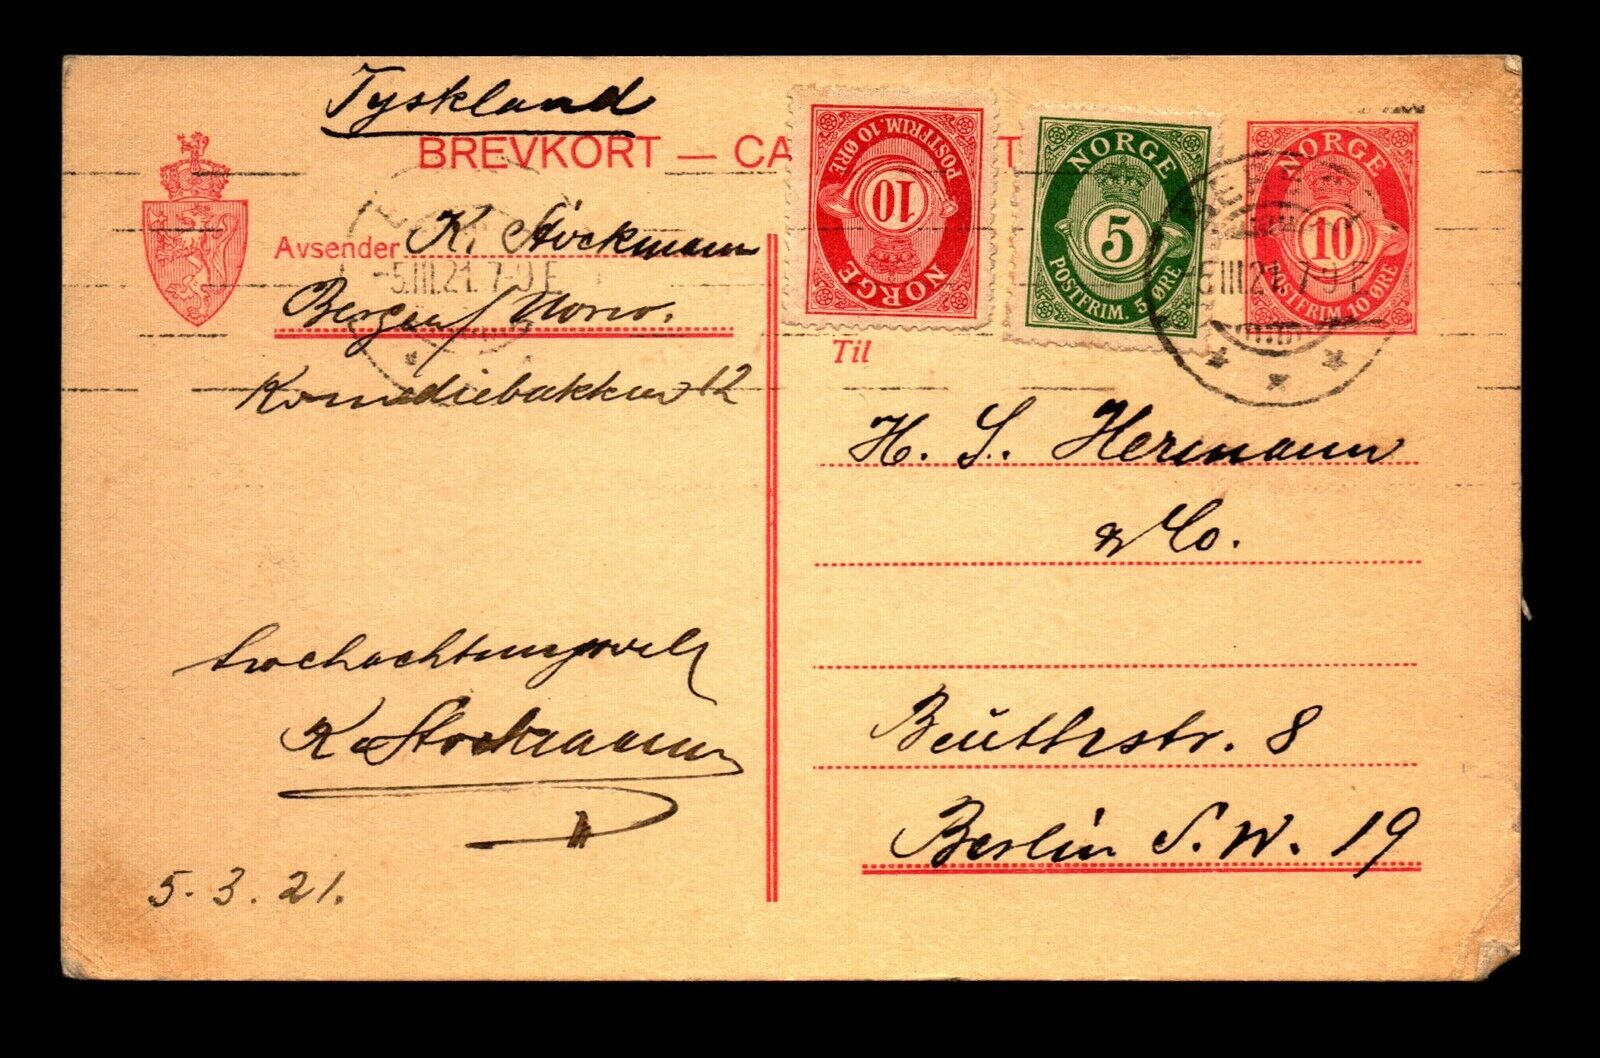 Tyskland
BREVKORT — CA T
NORGE 10 POSTFRIM. 10 ØRE
NORGE 5 POSTFRIM. 5 ØRE
NORGE 10 POSTFRIM. 10 ØRE
Avsender K. Stöckmann
Bergen/
Komediebakken 12
-5.III.21. 7-9 E
III.21. 7-9 E
Til
H. S. Hermann
& Co.
Beuthstr. 8
Berlin S.W. 19
hochachtungsvoll
K. Stockmann
5.3.21.